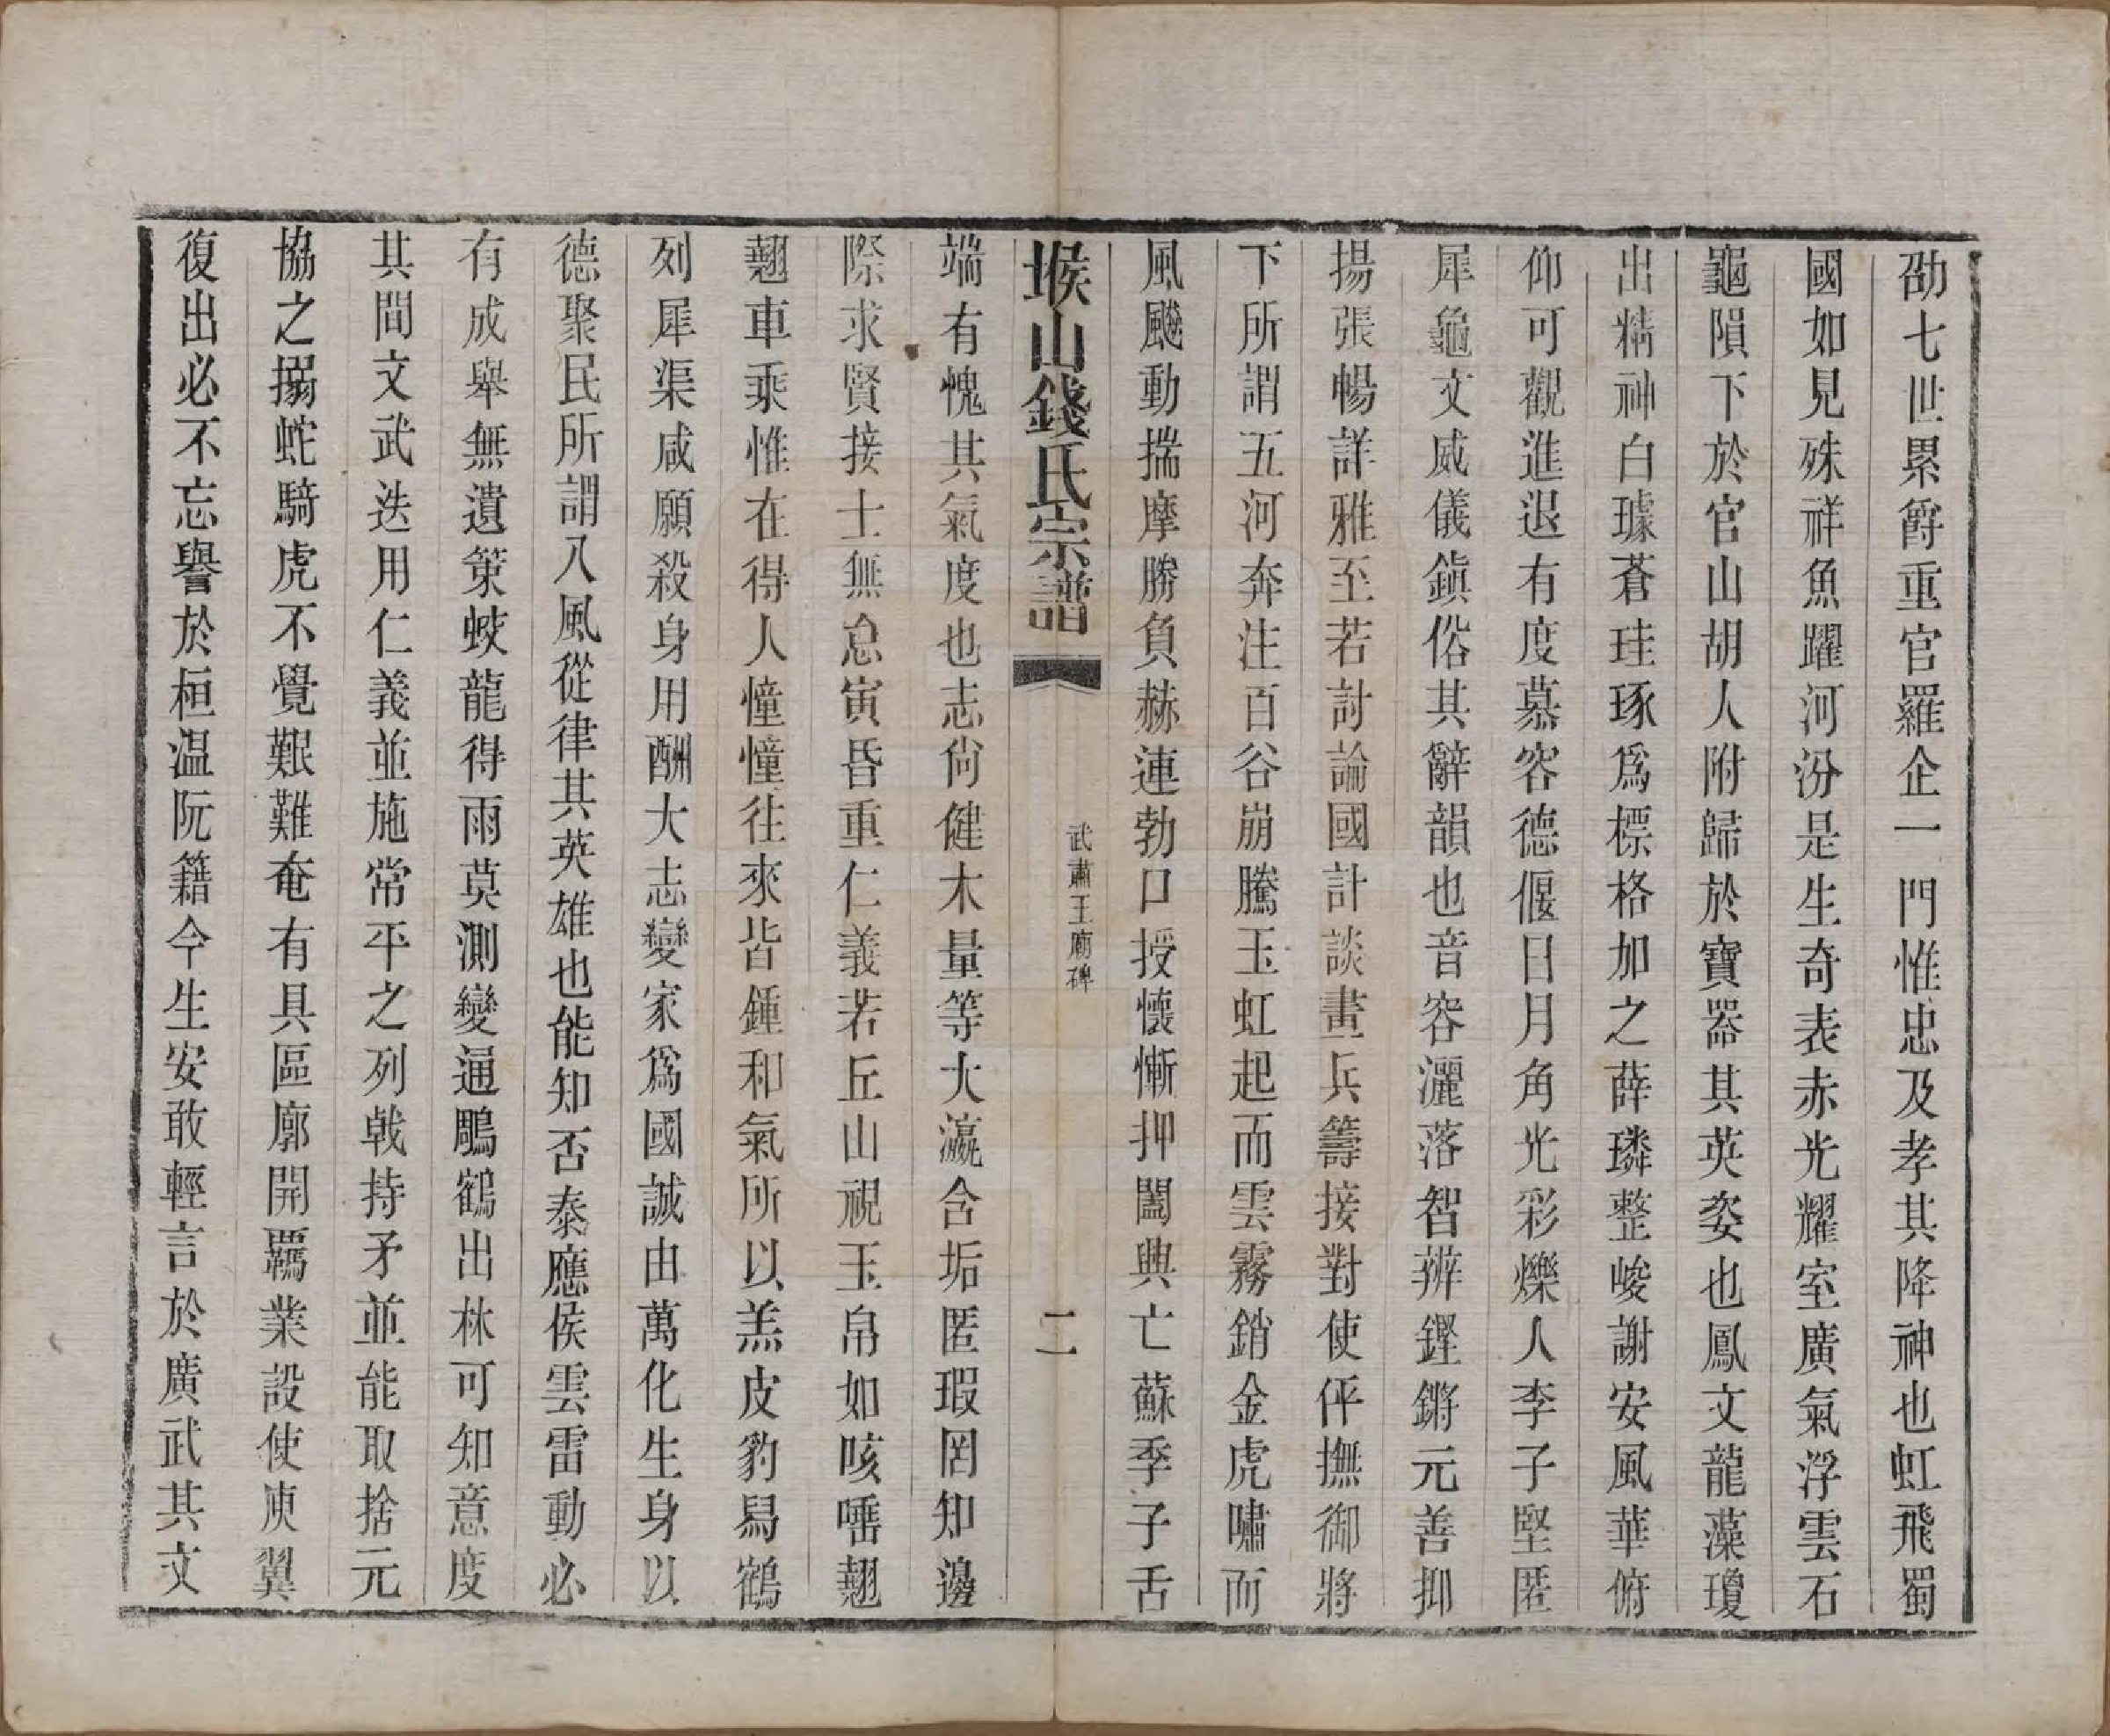 劭七世累爵重官羅企一門惟忠及孝其降神也虹飛蜀
國如見殊祥魚躍河汾是生奇表赤光耀室廣氣浮雲石
龜隕下於官山胡人附歸於寶器其英姿也鳳文龍藻瓊
出精神白璩蒼珪琢爲標格加之薛璘整峻謝安風華俯
仰可觀進退有度慕容德偃日月角光彩爍人李子堅匿
犀龜文威儀鎮俗其辭韻也音容灑落智辨鏗鏘元善抑
揚張暢詳雅至若討論國計談畫兵籌接對使伻撫御將
下所謂五河奔注百谷崩騰玉虹起而雲霧銷金虎嘯而
風飈動揣摩勝負赫連勃口授懷慚押闔興亡蘇季子舌
堠山錢氏宗譜
武肅王廟碑
二
端有愧其氣度也志尙健木量等大瀛含垢匿瑕罔知邊
際求賢接士無怠寅昏重仁義若丘山視玉帛如咳唾翹
翹車乘惟在得人憧憧往來皆鍾和氣所以羔皮豹舃鶴
列犀渠咸願殺身用酬大志變家爲國誠由萬化生身以
德聚民所謂八風從律其英雄也能知否泰應侯雲雷動必
有成舉無遺策蛟龍得雨莫測變通鵰鶴出林可知意度
其間文武迭用仁義並施常平之列戟持矛並能取捨元
協之搦蛇騎虎不覺艱難奄有具區廓開覊業設使庾翼
復出必不忘譽於桓温阮籍今生安敢輕言於廣武其文